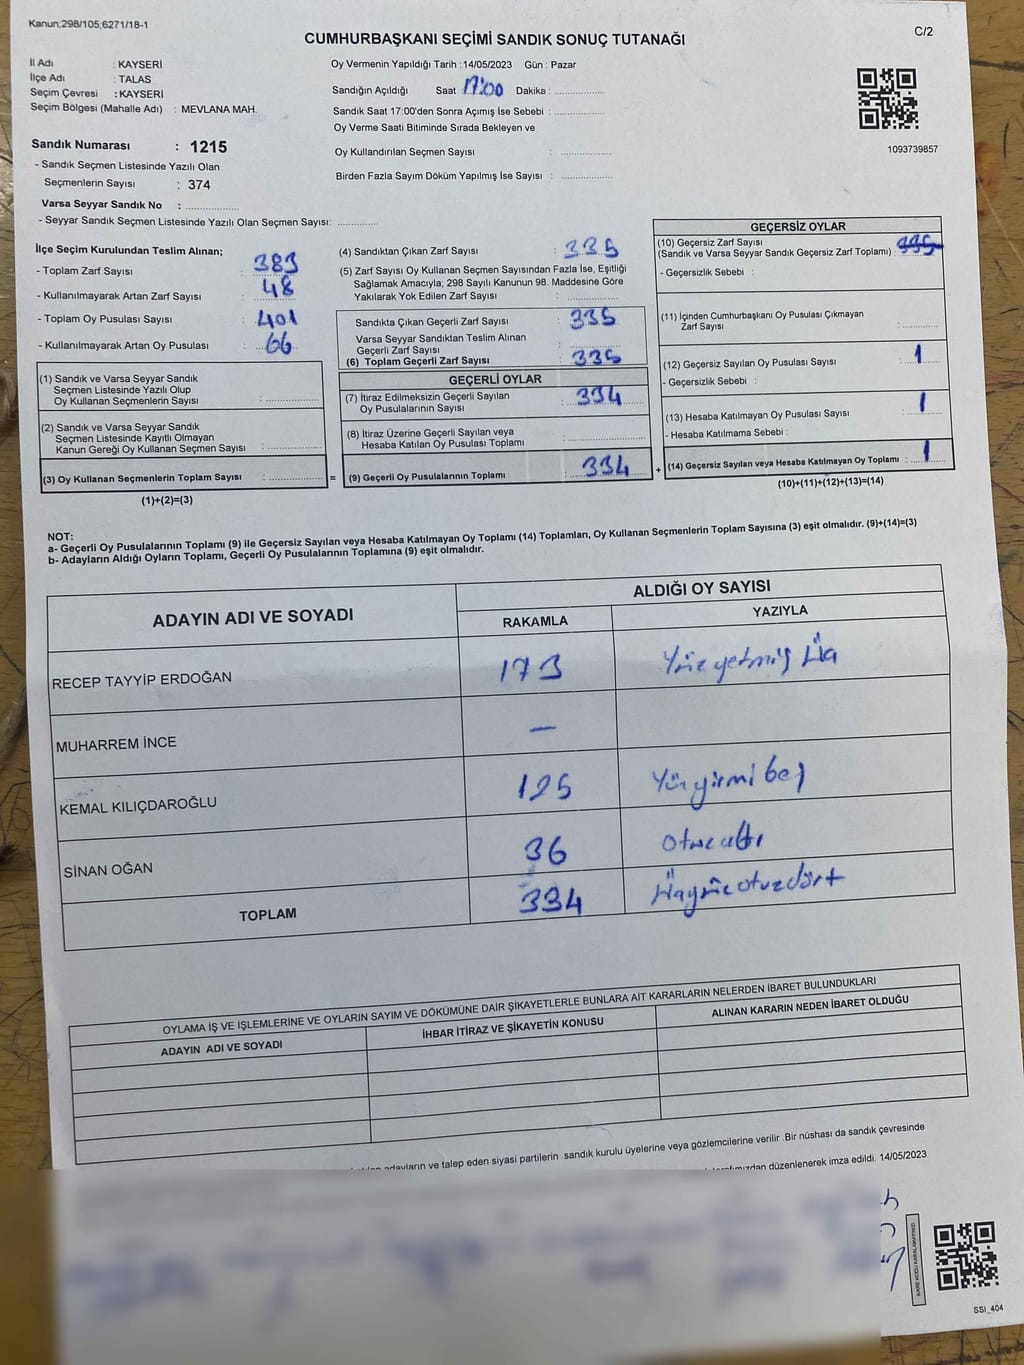 Kanun;298/105,6271/18-1
C/2
CUMHURBAŞKANI SEÇİMİ SANDIK SONUÇ TUTANAĞI
İl Adı : KAYSERİ
İlçe Adı : TALAS
Seçim Çevresi : KAYSERİ
Seçim Bölgesi (Mahalle Adı) : MEVLANA MAH.
Sandık Numarası : 1215
- Sandık Seçmen Listesinde Yazılı Olan
Seçmenlerin Sayısı : 374
Varsa Seyyar Sandık No : ................
- Seyyar Sandık Seçmen Listesinde Yazılı Olan Seçmen Sayısı: ............
Oy Vermenin Yapıldığı Tarih : 14/05/2023 Gün : Pazar
Sandığın Açıldığı Saat 17:00 Dakika : ................
Sandık Saat 17:00'den Sonra Açımış İse Sebebi : ................
Oy Verme Saati Bitiminde Sırada Bekleyen ve
Oy Kullandırılan Seçmen Sayısı : ................
Birden Fazla Sayım Döküm Yapılmış İse Sayısı : ................
1093739857
İlçe Seçim Kurulundan Teslim Alınan;
- Toplam Zarf Sayısı : 383
- Kullanılmayarak Artan Zarf Sayısı : 48
- Toplam Oy Pusulası Sayısı : 401
- Kullanılmayarak Artan Oy Pusulası : 66
(1) Sandık ve Varsa Seyyar Sandık
Seçmen Listesinde Yazılı Olup
Oy Kullanan Seçmenlerin Sayısı : ................
(2) Sandık ve Varsa Seyyar Sandık
Seçmen Listesinde Kayıtlı Olmayan
Kanun Gereği Oy Kullanan Seçmen Sayısı : ................
(3) Oy Kullanan Seçmenlerin Toplam Sayısı : ................ =
(1)+(2)=(3)
(4) Sandıktan Çıkan Zarf Sayısı : 335
(5) Zarf Sayısı Oy Kullanan Seçmen Sayısından Fazla İse, Eşitliği
Sağlamak Amacıyla; 298 Sayılı Kanunun 98. Maddesine Göre
Yakılarak Yok Edilen Zarf Sayısı : ................
Sandıkta Çıkan Geçerli Zarf Sayısı : 335
Varsa Seyyar Sandıktan Teslim Alınan
Geçerli Zarf Sayısı : ................
(6) Toplam Geçerli Zarf Sayısı : 335
GEÇERLİ OYLAR
(7) İtiraz Edilmeksizin Geçerli Sayılan
Oy Pusulalarının Sayısı : 334
(8) İtiraz Üzerine Geçerli Sayılan veya
Hesaba Katılan Oy Pusulası Toplamı : ................
(9) Geçerli Oy Pusulalarının Toplamı : 334 +
GEÇERSİZ OYLAR
(10) Geçersiz Zarf Sayısı
(Sandık ve Varsa Seyyar Sandık Geçersiz Zarf Toplamı) : 335
- Geçersizlik Sebebi :
(11) İçinden Cumhurbaşkanı Oy Pusulası Çıkmayan
Zarf Sayısı : ............
(12) Geçersiz Sayılan Oy Pusulası Sayısı : 1
- Geçersizlik Sebebi :
(13) Hesaba Katılmayan Oy Pusulası Sayısı : 1
- Hesaba Katılmama Sebebi :
(14) Geçersiz Sayılan veya Hesaba Katılmayan Oy Toplamı : 1
(10)+(11)+(12)+(13)=(14)
NOT:
a- Geçerli Oy Pusulalarının Toplamı (9) ile Geçersiz Sayılan veya Hesaba Katılmayan Oy Toplamı (14) Toplamları, Oy Kullanan Seçmenlerin Toplam Sayısına (3) eşit olmalıdır. (9)+(14)=(3)
b- Adayların Aldığı Oyların Toplamı, Geçerli Oy Pusulalarının Toplamına (9) eşit olmalıdır.
ADAYIN ADI VE SOYADI
ALDIĞI OY SAYISI
RAKAMLA YAZIYLA
RECEP TAYYİP ERDOĞAN 173 Yüzyetmiş Üç
MUHARREM İNCE —
KEMAL KILIÇDAROĞLU 125 Yüzyirmi beş
SİNAN OĞAN 36 otuzaltı
TOPLAM 334 Üçyüzotuzdört
OYLAMA İŞ VE İŞLEMLERİNE VE OYLARIN SAYIM VE DÖKÜMÜNE DAİR ŞİKAYETLERLE BUNLARA AİT KARARLARIN NELERDEN İBARET BULUNDUKLARI
ADAYIN ADI VE SOYADI İHBAR İTİRAZ VE ŞİKAYETİN KONUSU ALINAN KARARIN NEDEN İBARET OLDUĞU
adayların ve talep eden siyasi partilerin sandık kurulu üyelerine veya gözlemcilerine verilir .Bir nüshası da sandık çevresinde
düzenlenerek imza edildi. 14/05/2023
KARE KODU KARALAMAYINIZ!
SSI_404